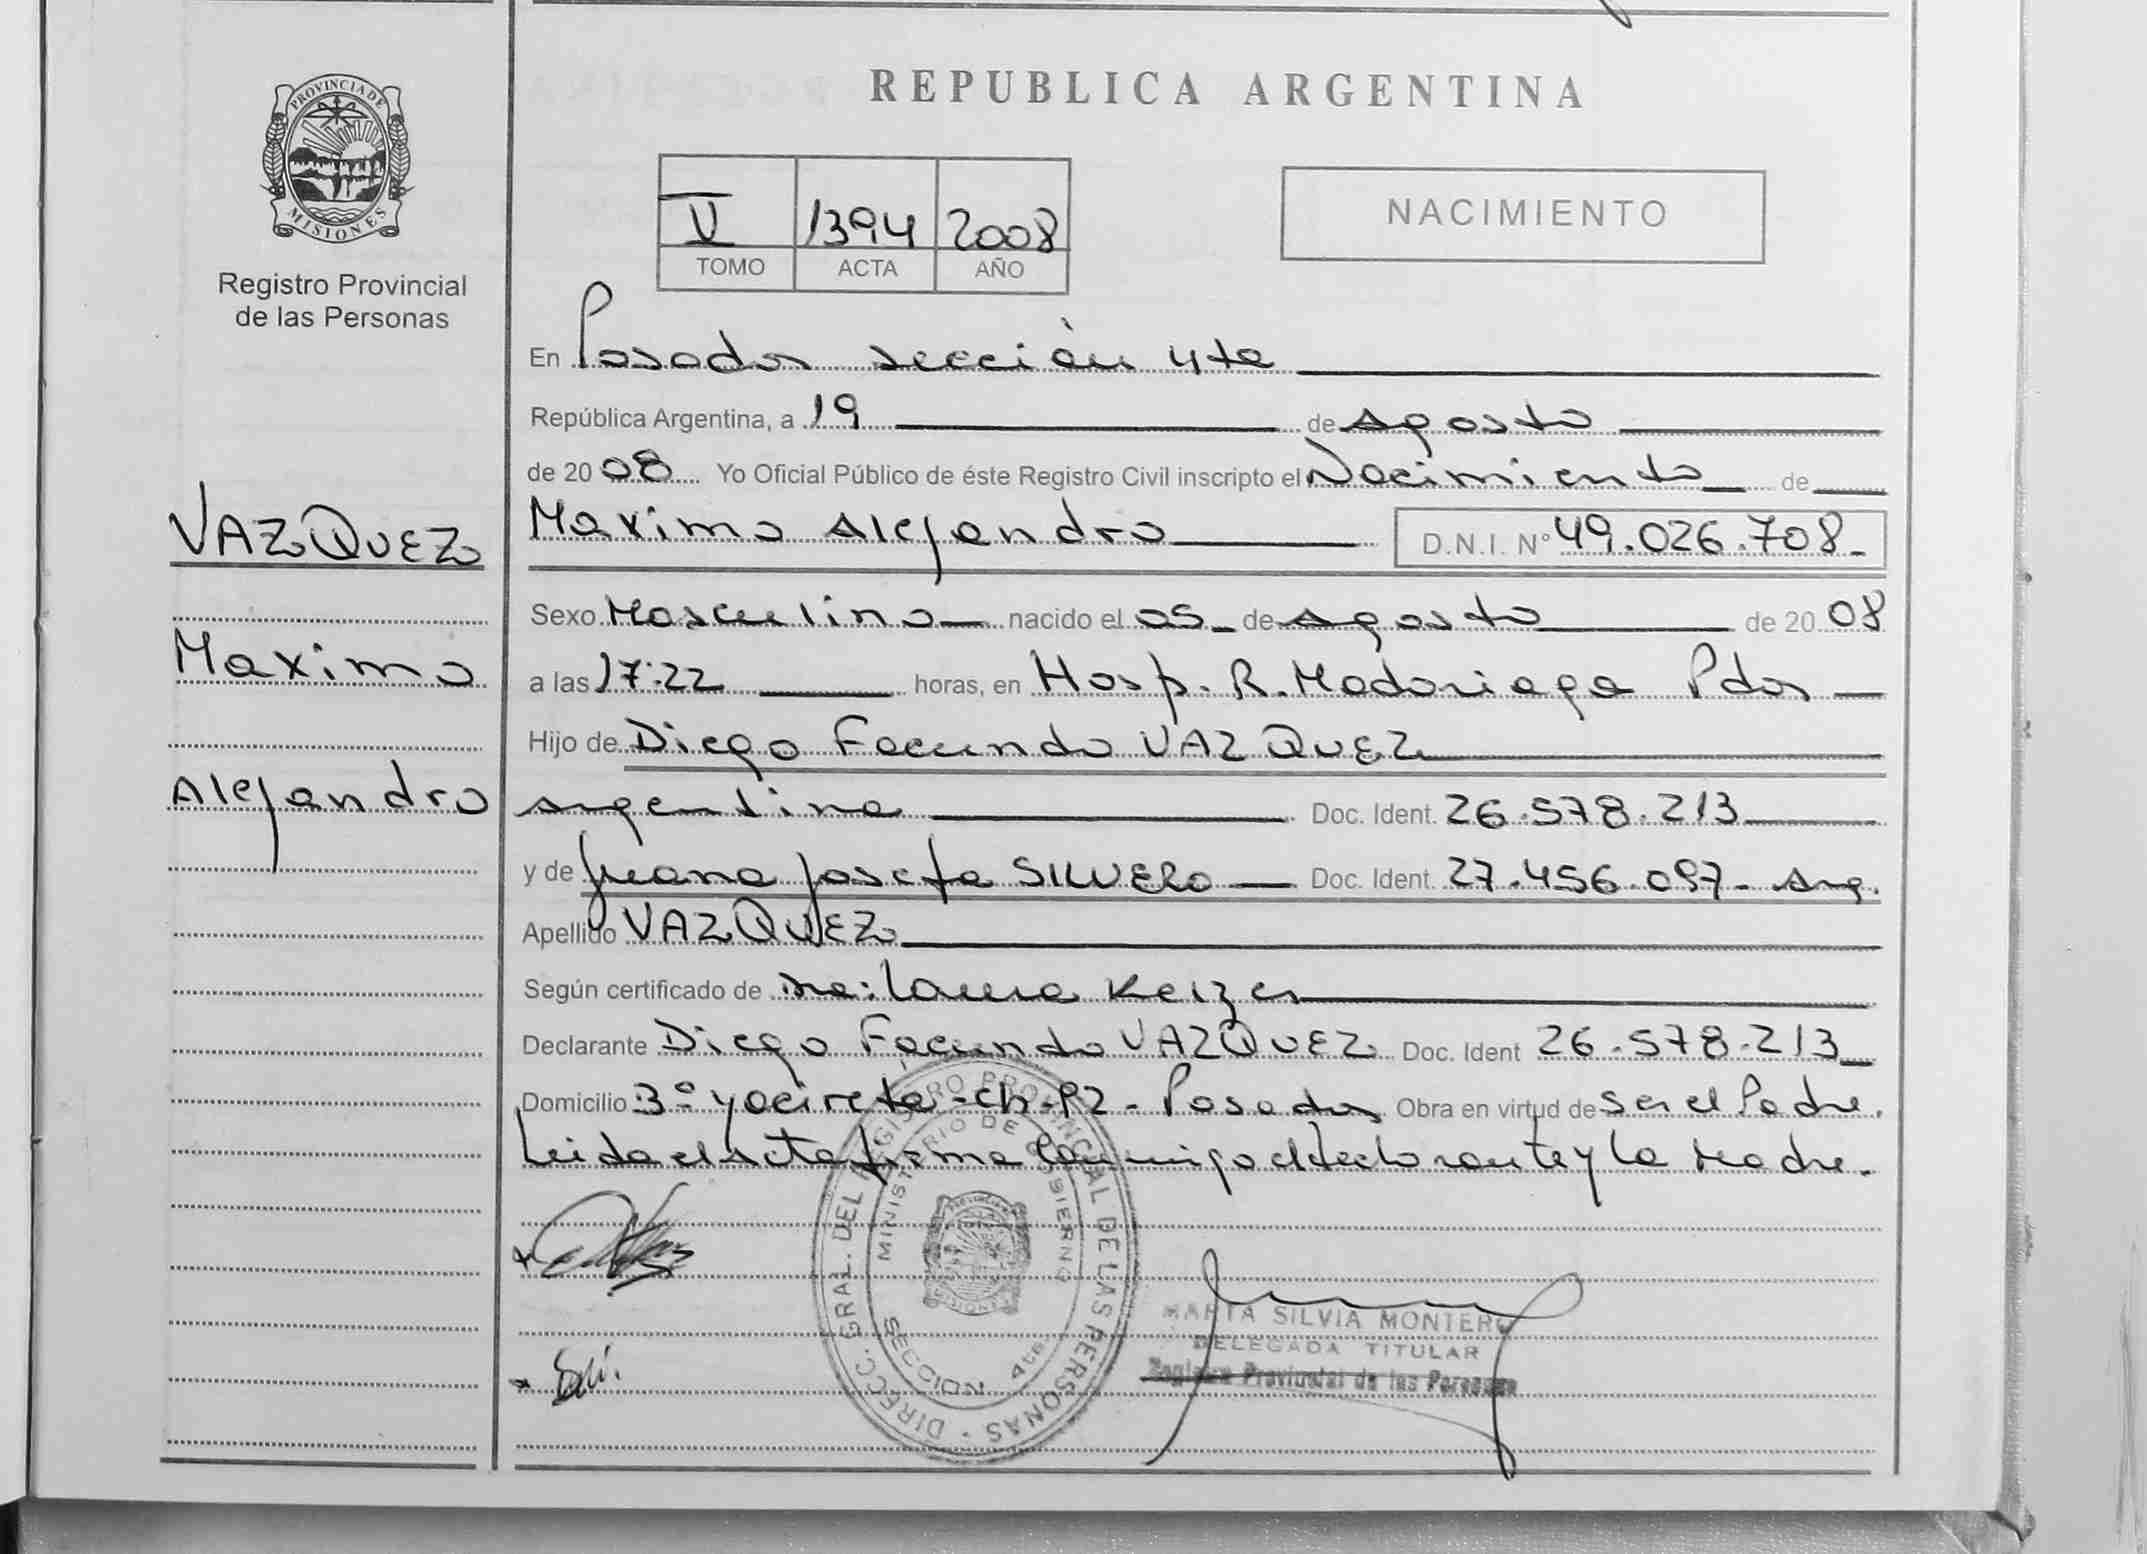 REPUBLICA ARGENTINA
PROVINCIA DE
MISIONES
Registro Provincial
de las Personas
V 1394 2008
TOMO ACTA AÑO
NACIMIENTO
En Posadas sección 4ta
República Argentina, a 19 de Agosto
de 2008 Yo Oficial Público de éste Registro Civil inscripto el Nacimiento de
VAZQUEZ
Maximo
Alejandro
Maximo Alejandro D.N.I. N° 49.026.708-
Sexo Masculino nacido el 05 de Agosto de 2008
a las 17:22 horas, en Hosp. R. Madariaga Pdas
Hijo de Diego Facundo VAZQUEZ
argentino Doc. Ident. 26.578.213
y de Juana Josefa SILVERO Doc. Ident. 27.456.097- Arg.
Apellido VAZQUEZ
Según certificado de Dra: Laura Keizer
Declarante Diego Facundo VAZQUEZ Doc. Ident 26.578.213
Domicilio 3° yacireta - Ch - 92 - Posadas Obra en virtud de ser el Padre.
Leida el acta firma conmigo el declarante y la Madre.
DIRECC. GRAL. DEL REGISTRO PROVINCIAL DE LAS PERSONAS
MINISTERIO DE GOBIERNO
SECCION 4ta
MISIONES
MARTA SILVIA MONTERO
DELEGADA TITULAR
Registro Provincial de las Personas